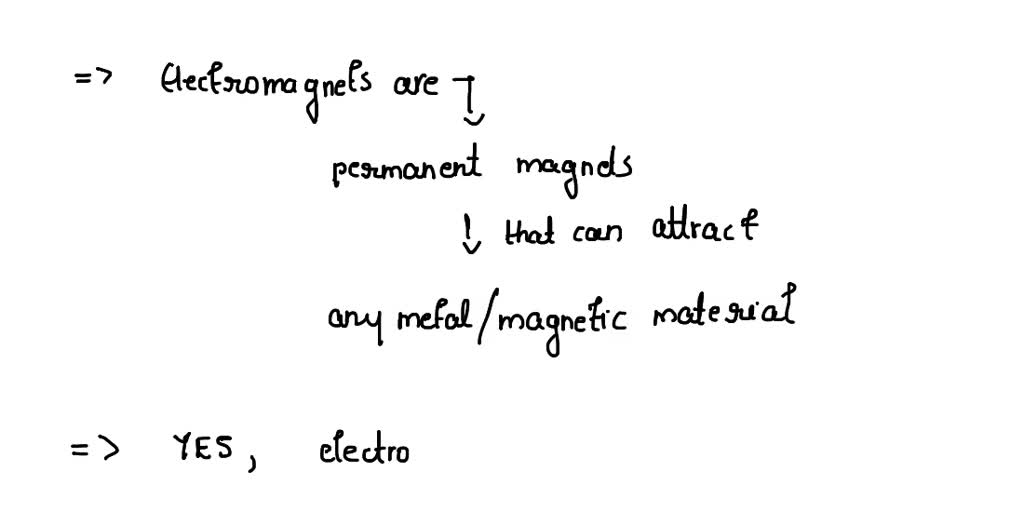 => Electromagnets are
permanent magnets
that can attract
any metal/magnetic material
=> YES, electro